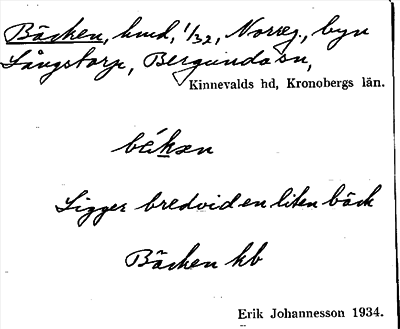 Bäcken, hmd, 1/32, Norreg., byn
Långstorp, Bergunda sn,
Kinnevalds hd, Kronobergs län.
bɛ́kən
Ligger bredvid en liten bäck
Bäcken hb
Erik Johannesson 1934.